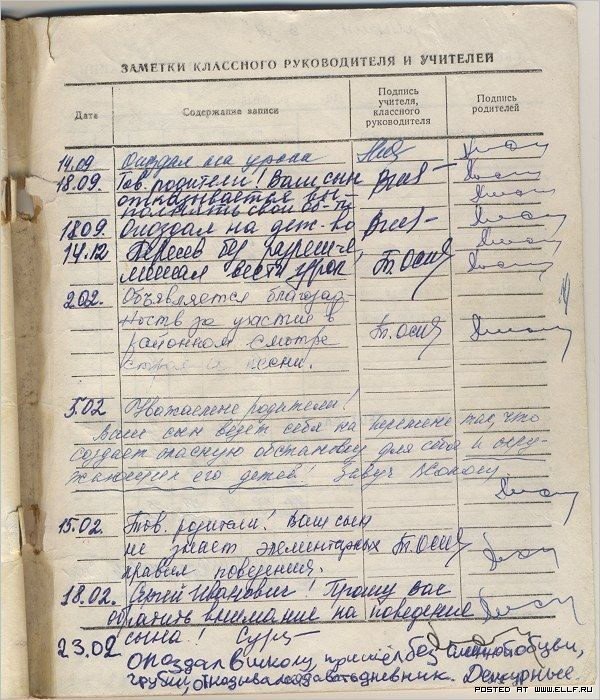 ЗАМЕТКИ КЛАССНОГО РУКОВОДИТЕЛЯ И УЧИТЕЛЕЙ
Дата Содержание записи Подпись учителя, классного руководителя Подпись родителей
14.09 Опоздал на уроки
18.09. Тов. родители! Ваш сын
отказывается вы-
полнять свои об-ти
18.09 Опоздал на деж-во
14.12 Пересев без разреше,
мешал вести урок Т. Осип
2.02. Объявляется благодар-
ность за участие в
районном смотре Т. Осип
строя и песни.
5.02 Уважаемые родители!
Ваш сын ведет себя на перемене так, что
создает опасную обстановку для себя и окру-
жающих его детей! Завуч
15.02. Тов. родители! Ваш сын
не знает элементарных Т. Осип
правил поведения.
18.02. Иванович! Прошу Вас
обратить внимание на поведение
сына!
23.02 опоздал в школу, пришёл без обуви,
грубил, отказывался давать дневник. Дежурные.
POSTED AT WWW.ELLF.RU